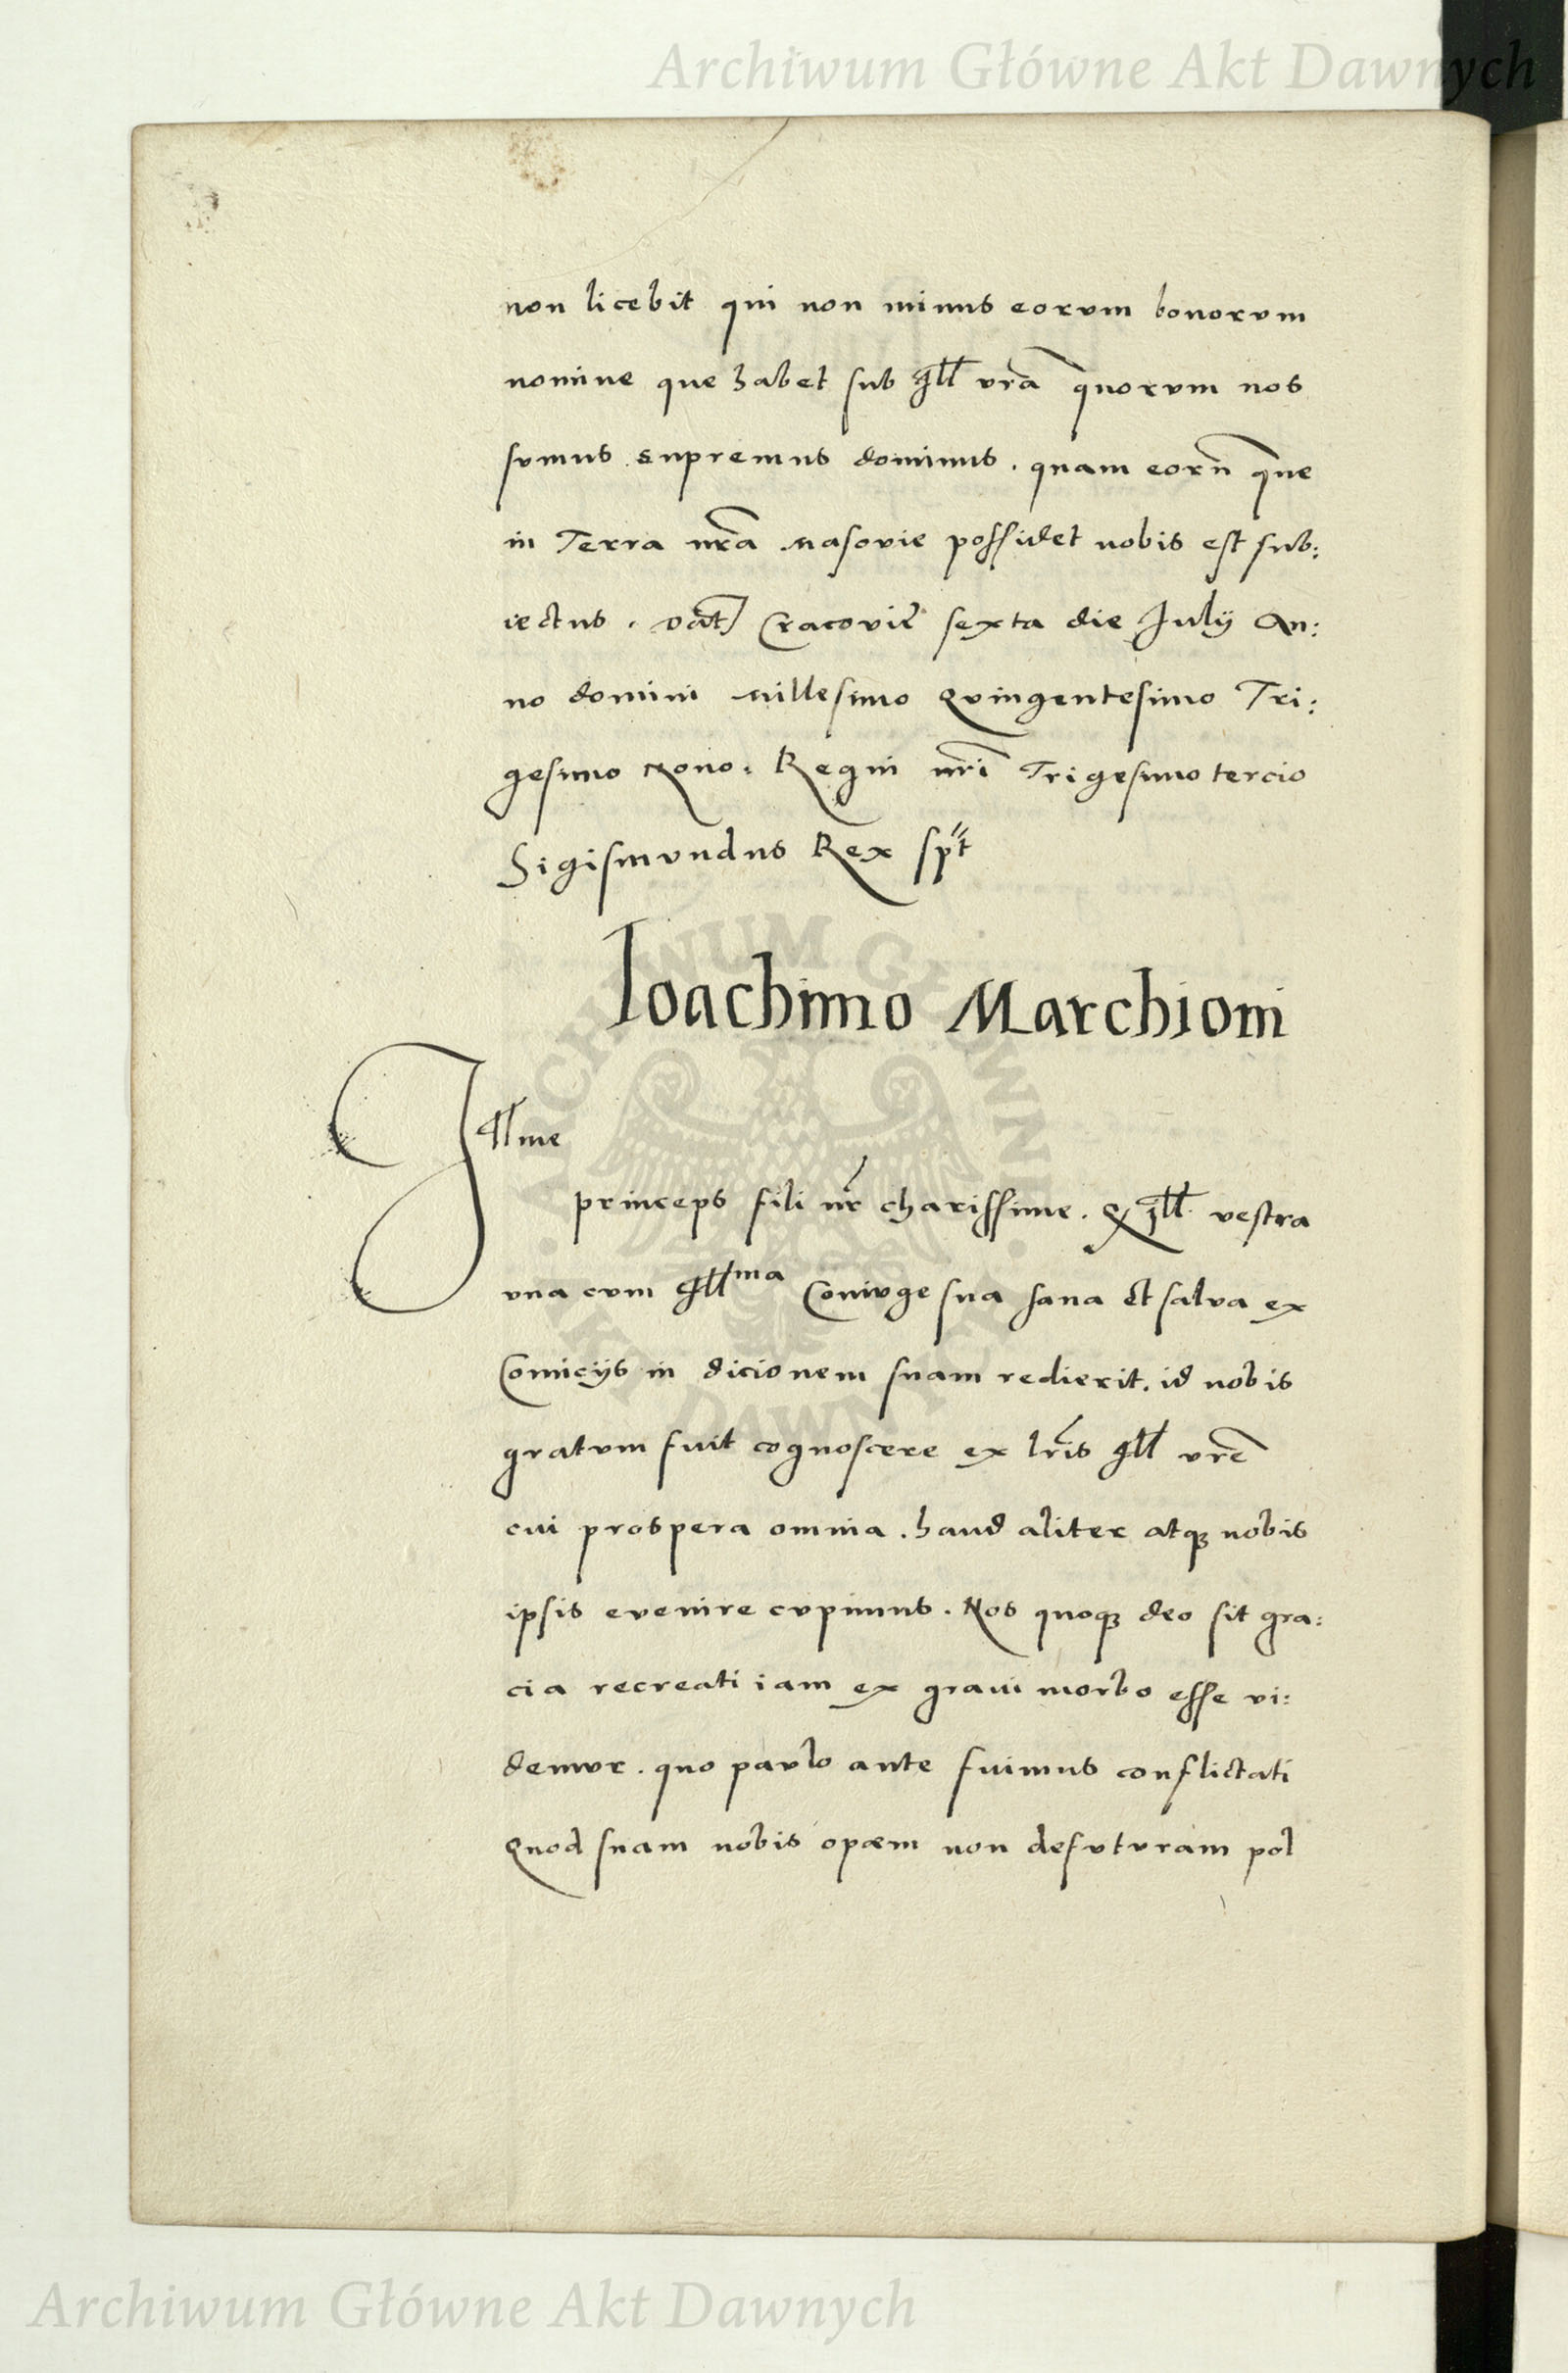 Archiwum Główne Akt Dawnych
non licebit qui non minus eorum bonorum
nomine que habet sub Ill vrã quorum nos
sumus supremus dominus. quam eorũ que
in Terra nrã Masovie possidet nobis est sub:
iectus. Dat Cracovie sexta die Julÿ An:
no domini Millesimo Quingentesimo Tri:
gesimo Nono. Regni nrĩ Trigesimo tercio
Sigismundus Rex spt
Ioachimo Marchioni
Illme
princeps fili nr charissime. Q Ill vestra
una cum Illma Coniuge sua sana et salva ex
Comicÿs in dicionem suam redierit. id nobis
gratum fuit cognoscere ex lris Ill vrẽ
cui prospera omnia. haud aliter atqꝫ nobis
ipsis evenire cupimus. Nos quoqꝫ deo sit gra:
cia recreati iam ex gravi morbo esse vi:
demur. quo paulo ante fuimus conflictati
Quod suam nobis opem non defuturam pol
ARCHIWUM GŁÓWNE · AKT DAWNYCH ·
Archiwum Główne Akt Dawnych